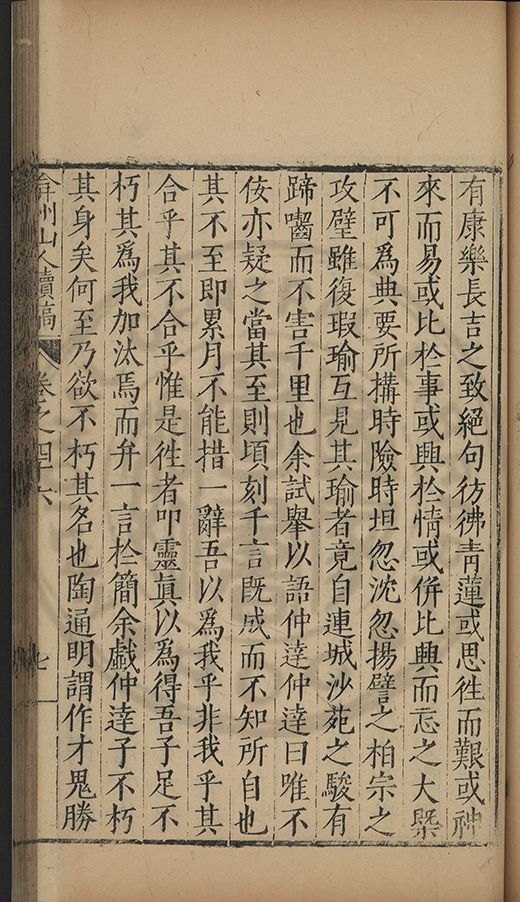 有康樂長吉之致絕句彷彿青蓮或思徃而艱或神
來而易或比於事或興於情或併比興而忘之大槩
不可為典要所搆時險時坦忽沈忽揚譬之柏宗之
攻璧雖復瑕瑜互見其瑜者竟自連城沙苑之駿有
蹄嚙而不害千里也余試舉以語仲達仲達曰唯不
佞亦疑之當其至則頃刻千言既成而不知所自也
其不至即累月不能措一辭吾以為我乎非我乎其
合乎其不合乎惟是徃者叩靈真以為得吾子足不
朽其為我加汰焉而弁一言於簡余戲仲達子不朽
其身矣何至乃欲不朽其名也陶通明謂作才鬼勝
弇州山人續稿 卷之四十六 七